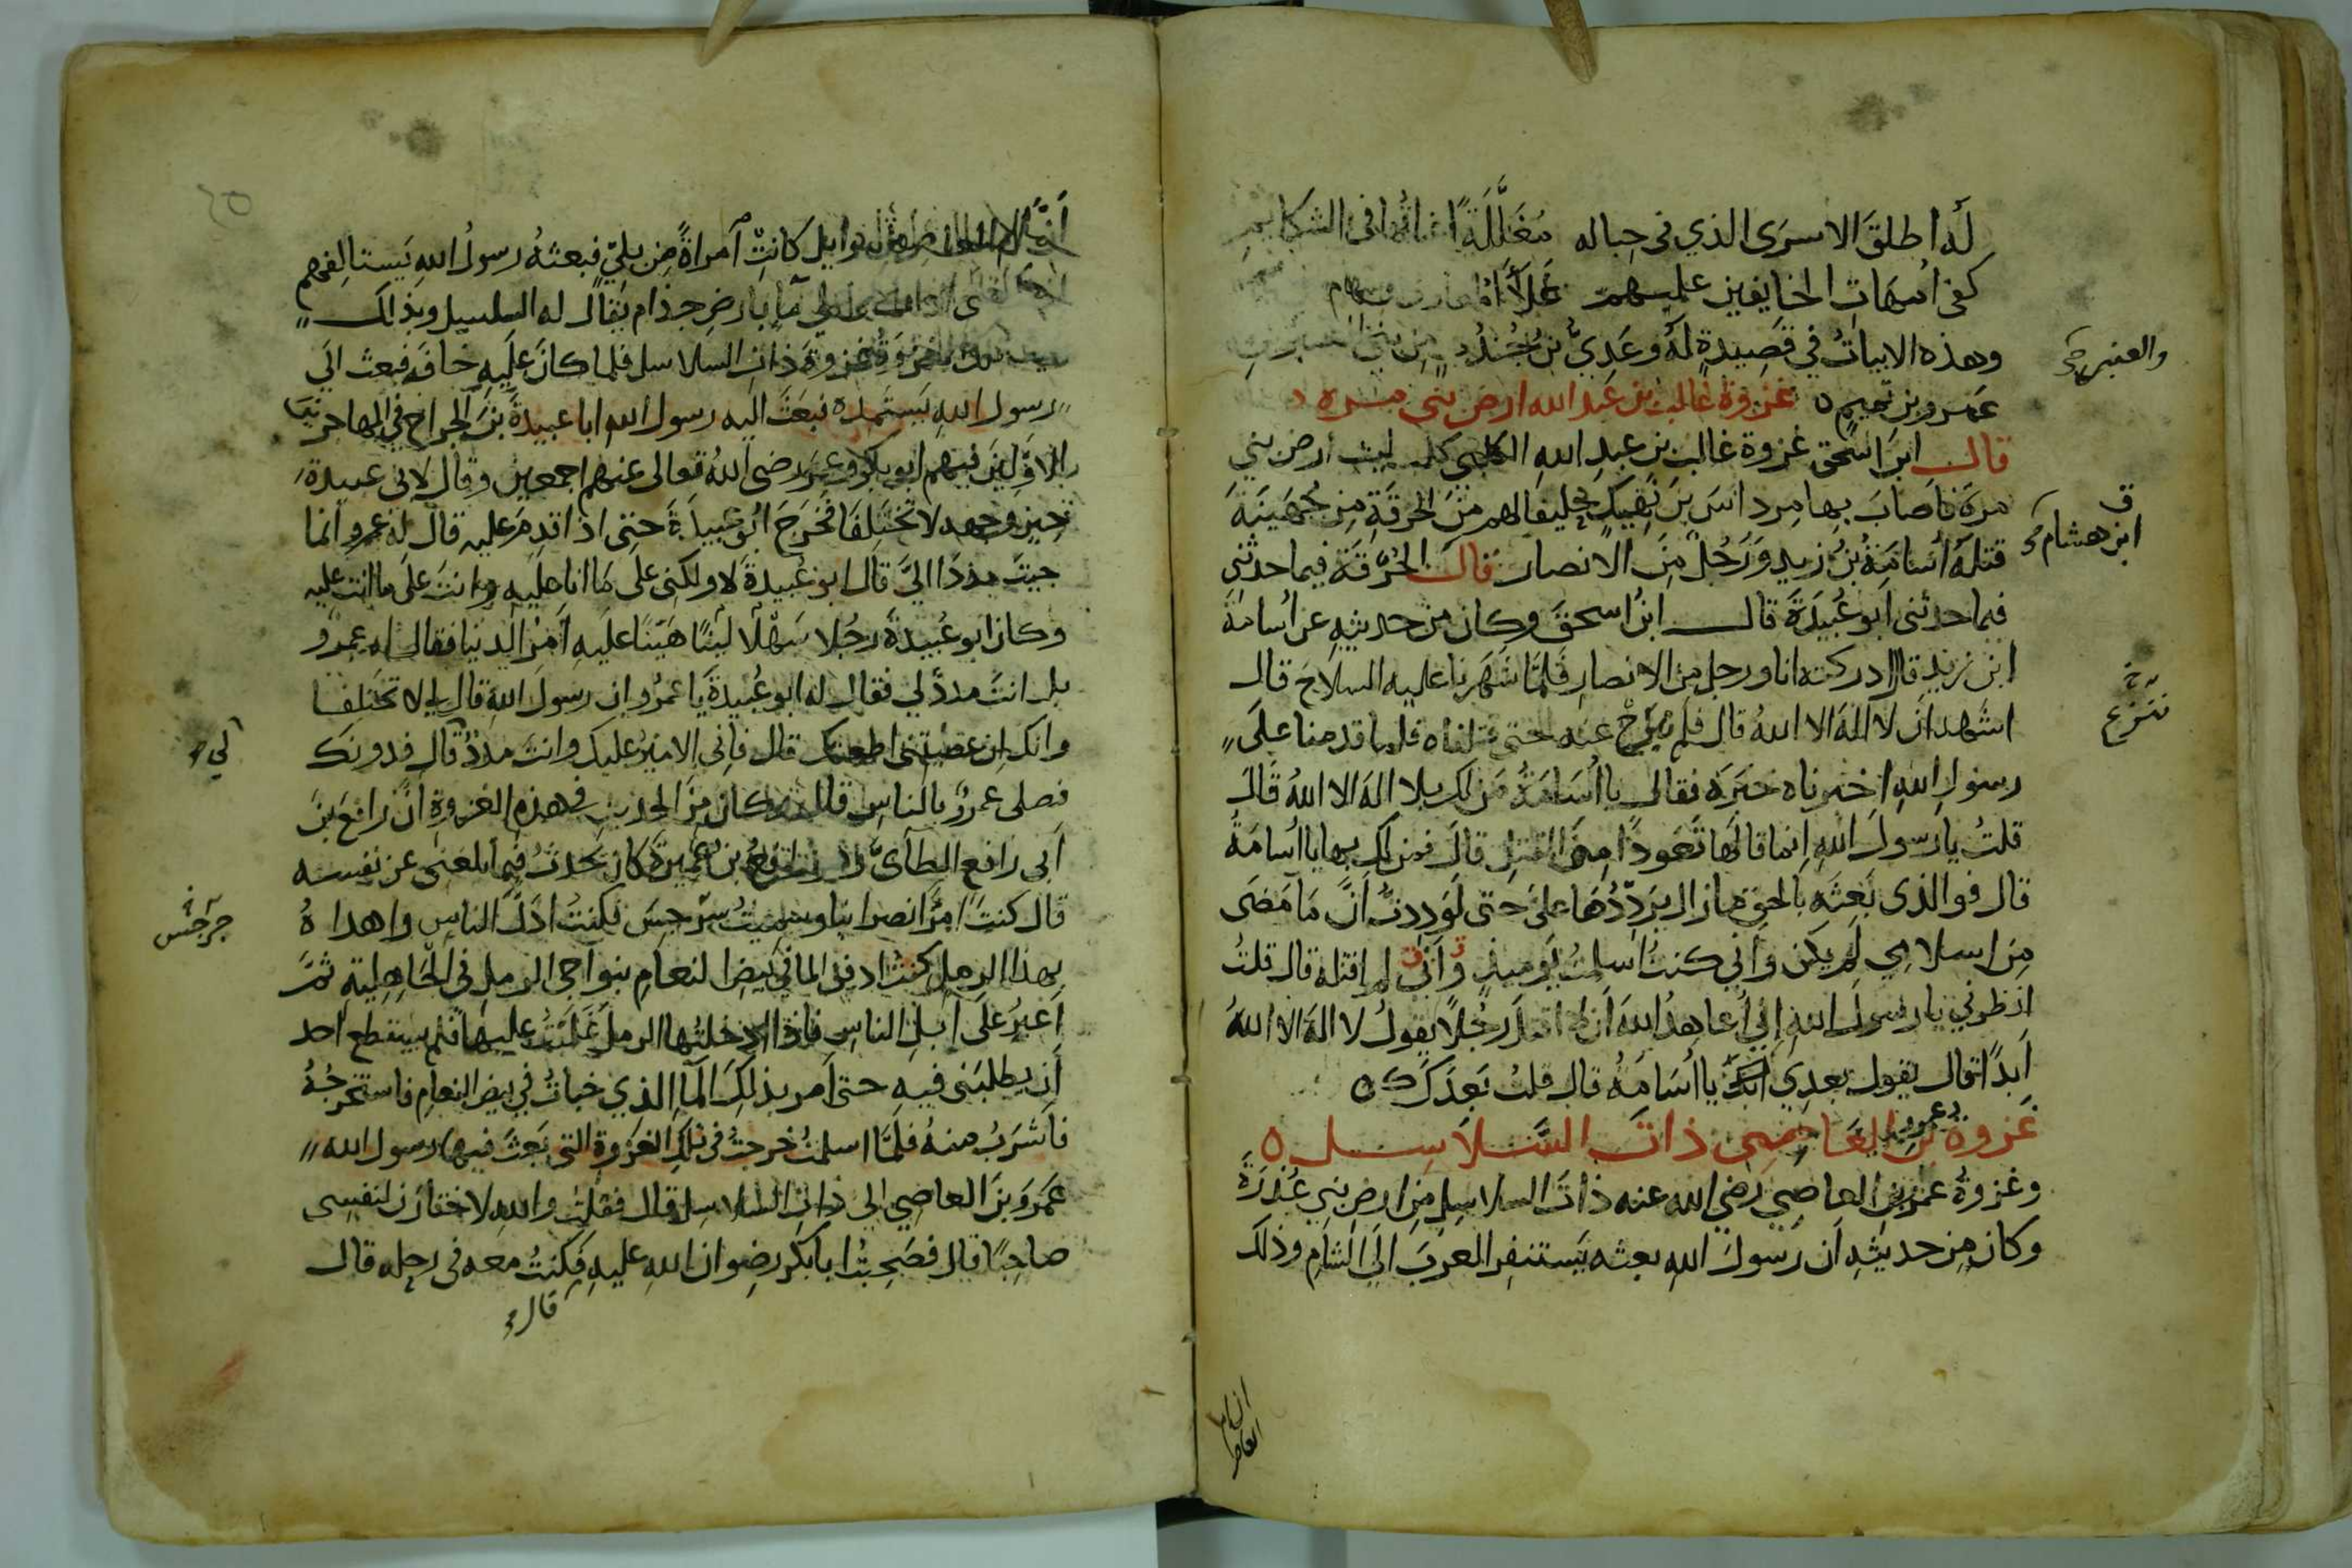 له اطلق الاسرى الذي في حباله مغللة اعناقها في الشكايم
كفى امهات الخايفين عليهم غلاء
وهذه الابيات في قصيدة له وعدي بن جندب من بني العنبر
والعنبر
عمرو بن تميم ٥ غزوة غالب بن عبد الله ارض بني مرة
قال ابن اسحق غزوة غالب بن عبد الله الكلبي كلب ليث ارض بني
مرة فاصاب بها مرداس بن نهيك حليفا لهم من الحرقة من جهينة
ق
ابن هشام
قتله اسامة بن زيد ورجل من الانصار قال الحرقة فيما حدثني
فيما حدثني ابو عبيدة قال ابن اسحق وكان من حديثه عن اسامة
ابن زيد قال ادركته انا ورجل من الانصار فلما شهرنا عليه السلاح قال
اشهد ان لا اله الا الله قال فلم عنه حتى قتلناه فلما قدمنا على
ننزع
رسول الله اخبرناه خبره فقال يا اسامة من لك بلا اله الا الله قال
قلت يا رسول الله انما قالها تعوذا من القتل قال فمن لك بها يا اسامة
قال فوالذي بعثه بالحق ما زال يرددها علي حتى لوددت ان ما مضى
من اسلامي لم يكن واني كنت اسلمت يوميذ واني لم اقتله قال قلت
انظرني يا رسول الله اني اعاهد الله ان لا اقتل رجلا يقول لا اله الا الله
ابدا قال يقول بعدي يا اسامة قال قلت بعدك ٥
غزوة عمرو بن العاصي ذات السلاسل ٥
وغزوة عمرو بن العاصي رضي الله عنه ذات السلاسل من ارض بني عذرة
وكان من حديثه ان رسول الله بعثه يستنفر العرب الى الشام وذلك
ان ام العاص بن وايل كانت امراة من بلي فبعثه رسول الله يستالفهم
على ما بارض جذام يقال له السلسل وبذلك
سميت تلك الغزوة غزوة ذات السلاسل فلما كان عليه خاف فبعث الى
رسول الله يستمده فبعث اليه رسول الله ابا عبيدة بن الجراح في المهاجرين
الاولين فيهم ابو بكر وعمر رضي الله تعالى عنهم اجمعين وقال لابي عبيدة
حين وجهه لا تختلفا فخرج ابو عبيدة حتى اذا قدم عليه قال له عمرو انما
جيت مددا الي قال ابو عبيدة لا ولكني على ما انا عليه وانت على ما انت عليه
وكان ابو عبيدة رجلا سهلا لينا هينا عليه امر الدنيا فقال له عمرو
بل انت مدد لي فقال له ابو عبيدة يا عمرو ان رسول الله قال لي لا تختلفا
وانك ان عصيتني اطعتك قال فاني الامير عليك وانت مدد قال فدونك
لي
فصلى عمرو بالناس قال وكان من الحديث في هذه الغزوة ان رافع بن
ابي رافع الطاي وهو رافع بن عميرة كان يحدث فيما بلغني عن نفسه
قال كنت امرا نصرانيا وسميت سرجس فكنت ادل الناس واهداه
جرجس
بهذا الرمل كنت ادفن الما في بيض النعام بنواحي الرمل في الجاهلية ثم
اغير على ابل الناس فاذا ادخلتها الرمل غلبت عليها فلم يستطع احد
ان يطلبني فيه حتى امر بذلك الما الذي خبات في بيض النعام فاستخرجه
فاشرب منه فلما اسلمت خرجت في تلك الغزوة التي بعث فيها رسول الله
عمرو بن العاصي الى ذات السلاسل قال فقلت والله لاختارن لنفسي
صاحبا قال فصحبت ابا بكر رضوان الله عليه فكنت معه في رحله قال
قال